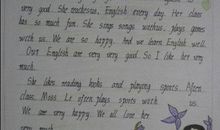 very good. She teaches us English every day. Her class
has so much fun. She sings songs with us, plays games
with us. We are so happy. And we learn English well.
Our English are very very good. So I like her very
much.
She likes reading books and playing sports. Often
class, Miss Le often plays sports with us.
We are very happy. We all love her
very much.